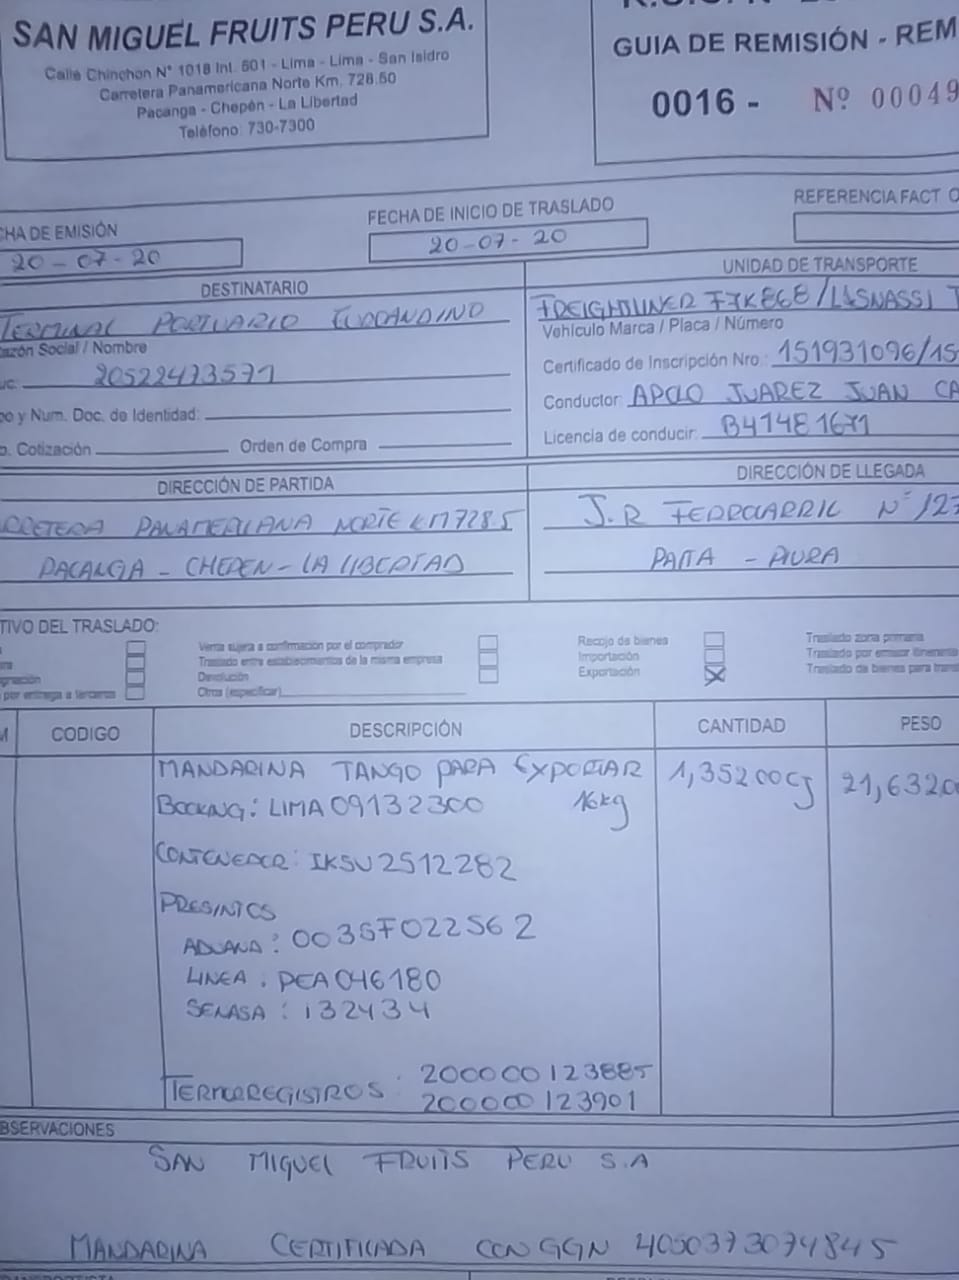 SAN MIGUEL FRUITS PERU S.A.
Calle Chinchon N° 1018 Int. 601 - Lima - Lima - San Isidro
Carretera Panamericana Norte Km. 728.50
Pacanga - Chepén - La Libertad
Teléfono: 730-7300
GUIA DE REMISIÓN - REM
0016 - Nº 00049
HA DE EMISIÓN
20-07-20
FECHA DE INICIO DE TRASLADO
20-07-20
REFERENCIA FACT
DESTINATARIO
TERMINAL PORTUARIO EUROANDINO
azón Social / Nombre
20522473571
o y Num. Doc. de Identidad:
Cotización Orden de Compra
UNIDAD DE TRANSPORTE
FREIGHTLINER
Vehículo Marca / Placa / Número
Certificado de Inscripción Nro.: 151931096/15
Conductor: APOLO JUAREZ JUAN CA
Licencia de conducir: B41481671
DIRECCIÓN DE PARTIDA
RRETERA PANAMERICANA NORTE KM 728.5
PACANGA - CHEPEN - LA LIBERTAD
DIRECCIÓN DE LLEGADA
J.R FERROCARRIL N° 127
PAITA - PIURA
TIVO DEL TRASLADO:
por entrega a terceros
Venta sujera a confirmación por el comprador
Traslado entre establecimientos de la misma empresa
Devolución
Otros (especificar)
Recojo de bienes
Importación
Exportación
Traslado zona primaria
Traslado por emisor itinerante
Traslado de bienes para
CODIGO DESCRIPCIÓN CANTIDAD PESO
MANDARINA TANGO PARA EXPORTAR 1,352.00 CJ 21,632.0
BOOKING: LIMA09132300 16kg
CONTENEDOR: IKSU2512282
PRESINTOS
ADUANA: 0035F022562
LINEA: PEA046180
SENASA: 132434
TERMOREGISTROS: 200000123885
200000123901
BSERVACIONES
SAN MIGUEL FRUITS PERU S.A
MANDARINA CERTIFICADA CON GGN 4050373074845